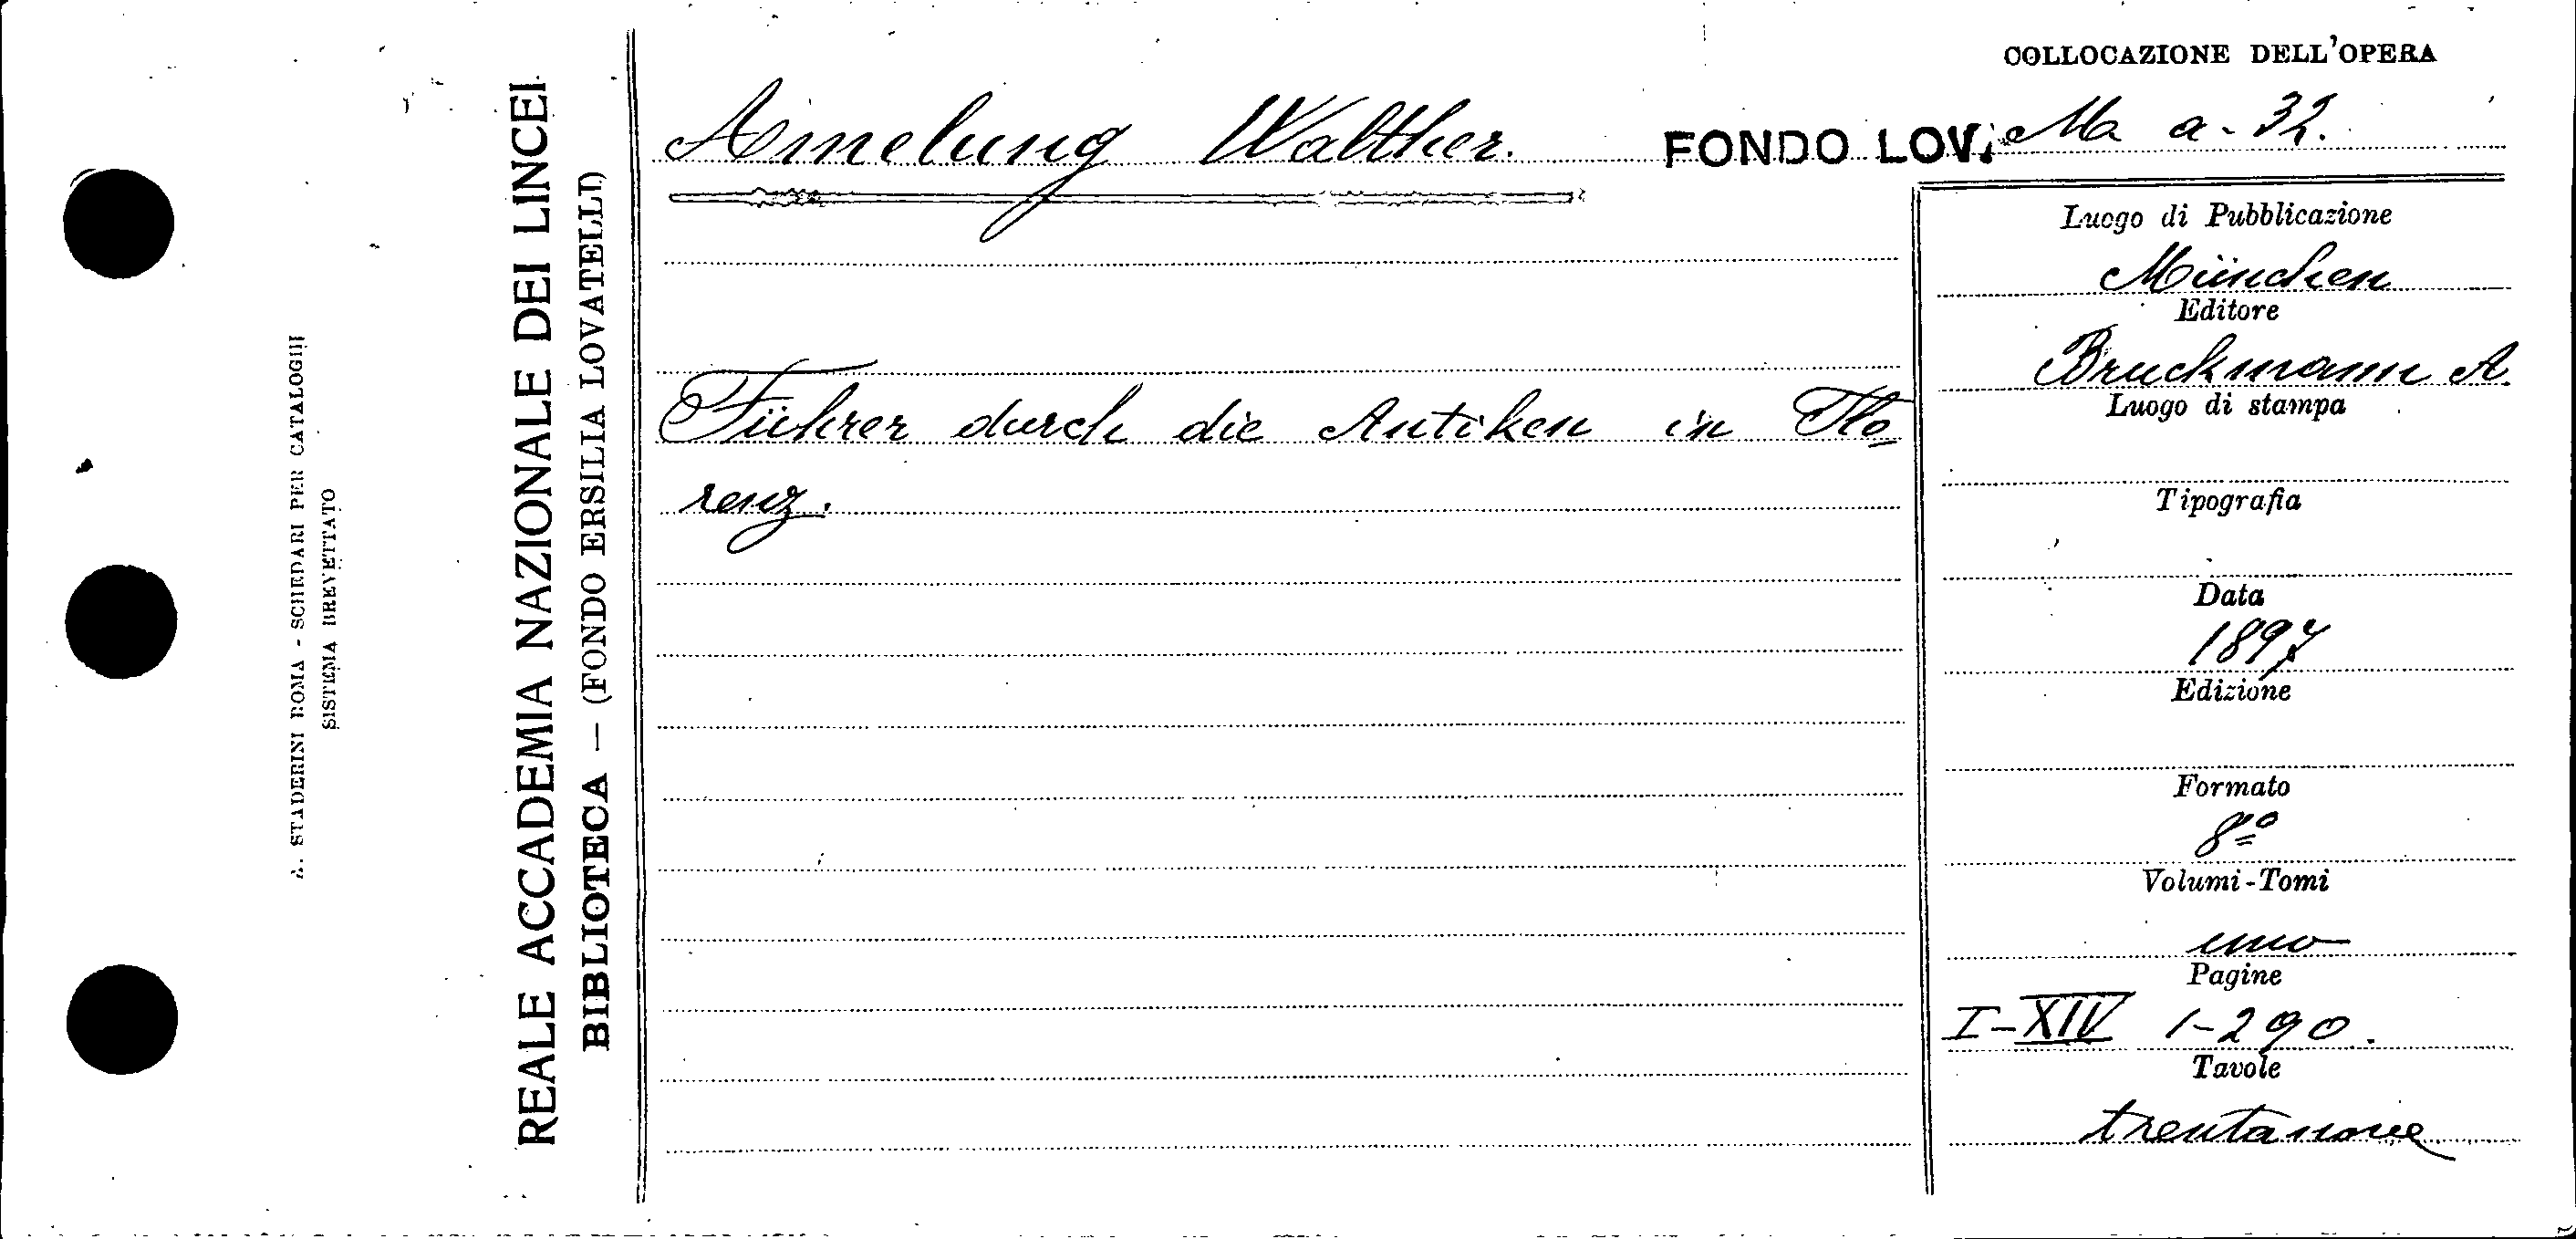 COLLOCAZIONE DELL'OPERA
Amelung Walther.
FONDO LOV. Ma a-32.
Führer durch die Antiken in Flo=
renz.
Luogo di Pubblicazione
München
Editore
Bruckmann A.
Luogo di stampa
Tipografia
Data
1897
Edizione
Formato
8º
Volumi-Tomi
uno
Pagine
I-XIV 1-290.
Tavole
trentanove
REALE ACCADEMIA NAZIONALE DEI LINCEI
BIBLIOTECA — (FONDO ERSILIA LOVATELLI)
A. STADERINI ROMA - SCHEDARI PER CATALOGHI
SISTEMA BREVETTATO